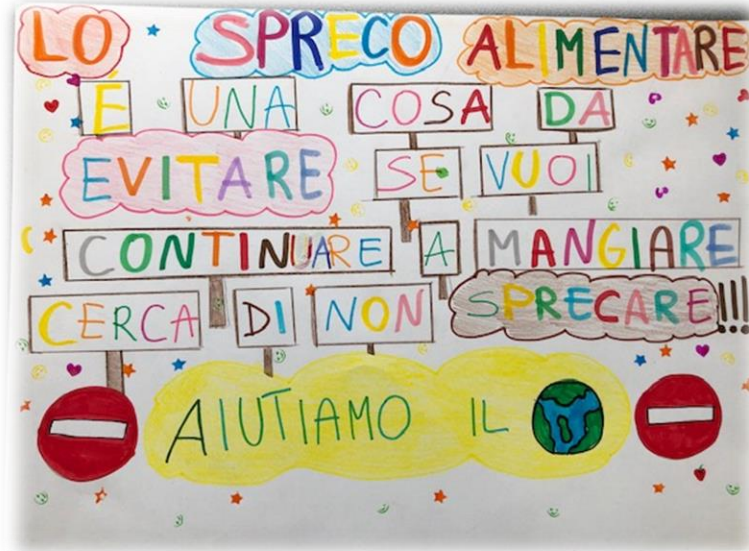 LO SPRECO ALIMENTARE
É UNA COSA DA
EVITARE SE VUOI
CONTINUARE A MANGIARE
CERCA DI NON SPRECARE!!!
AIUTIAMO IL